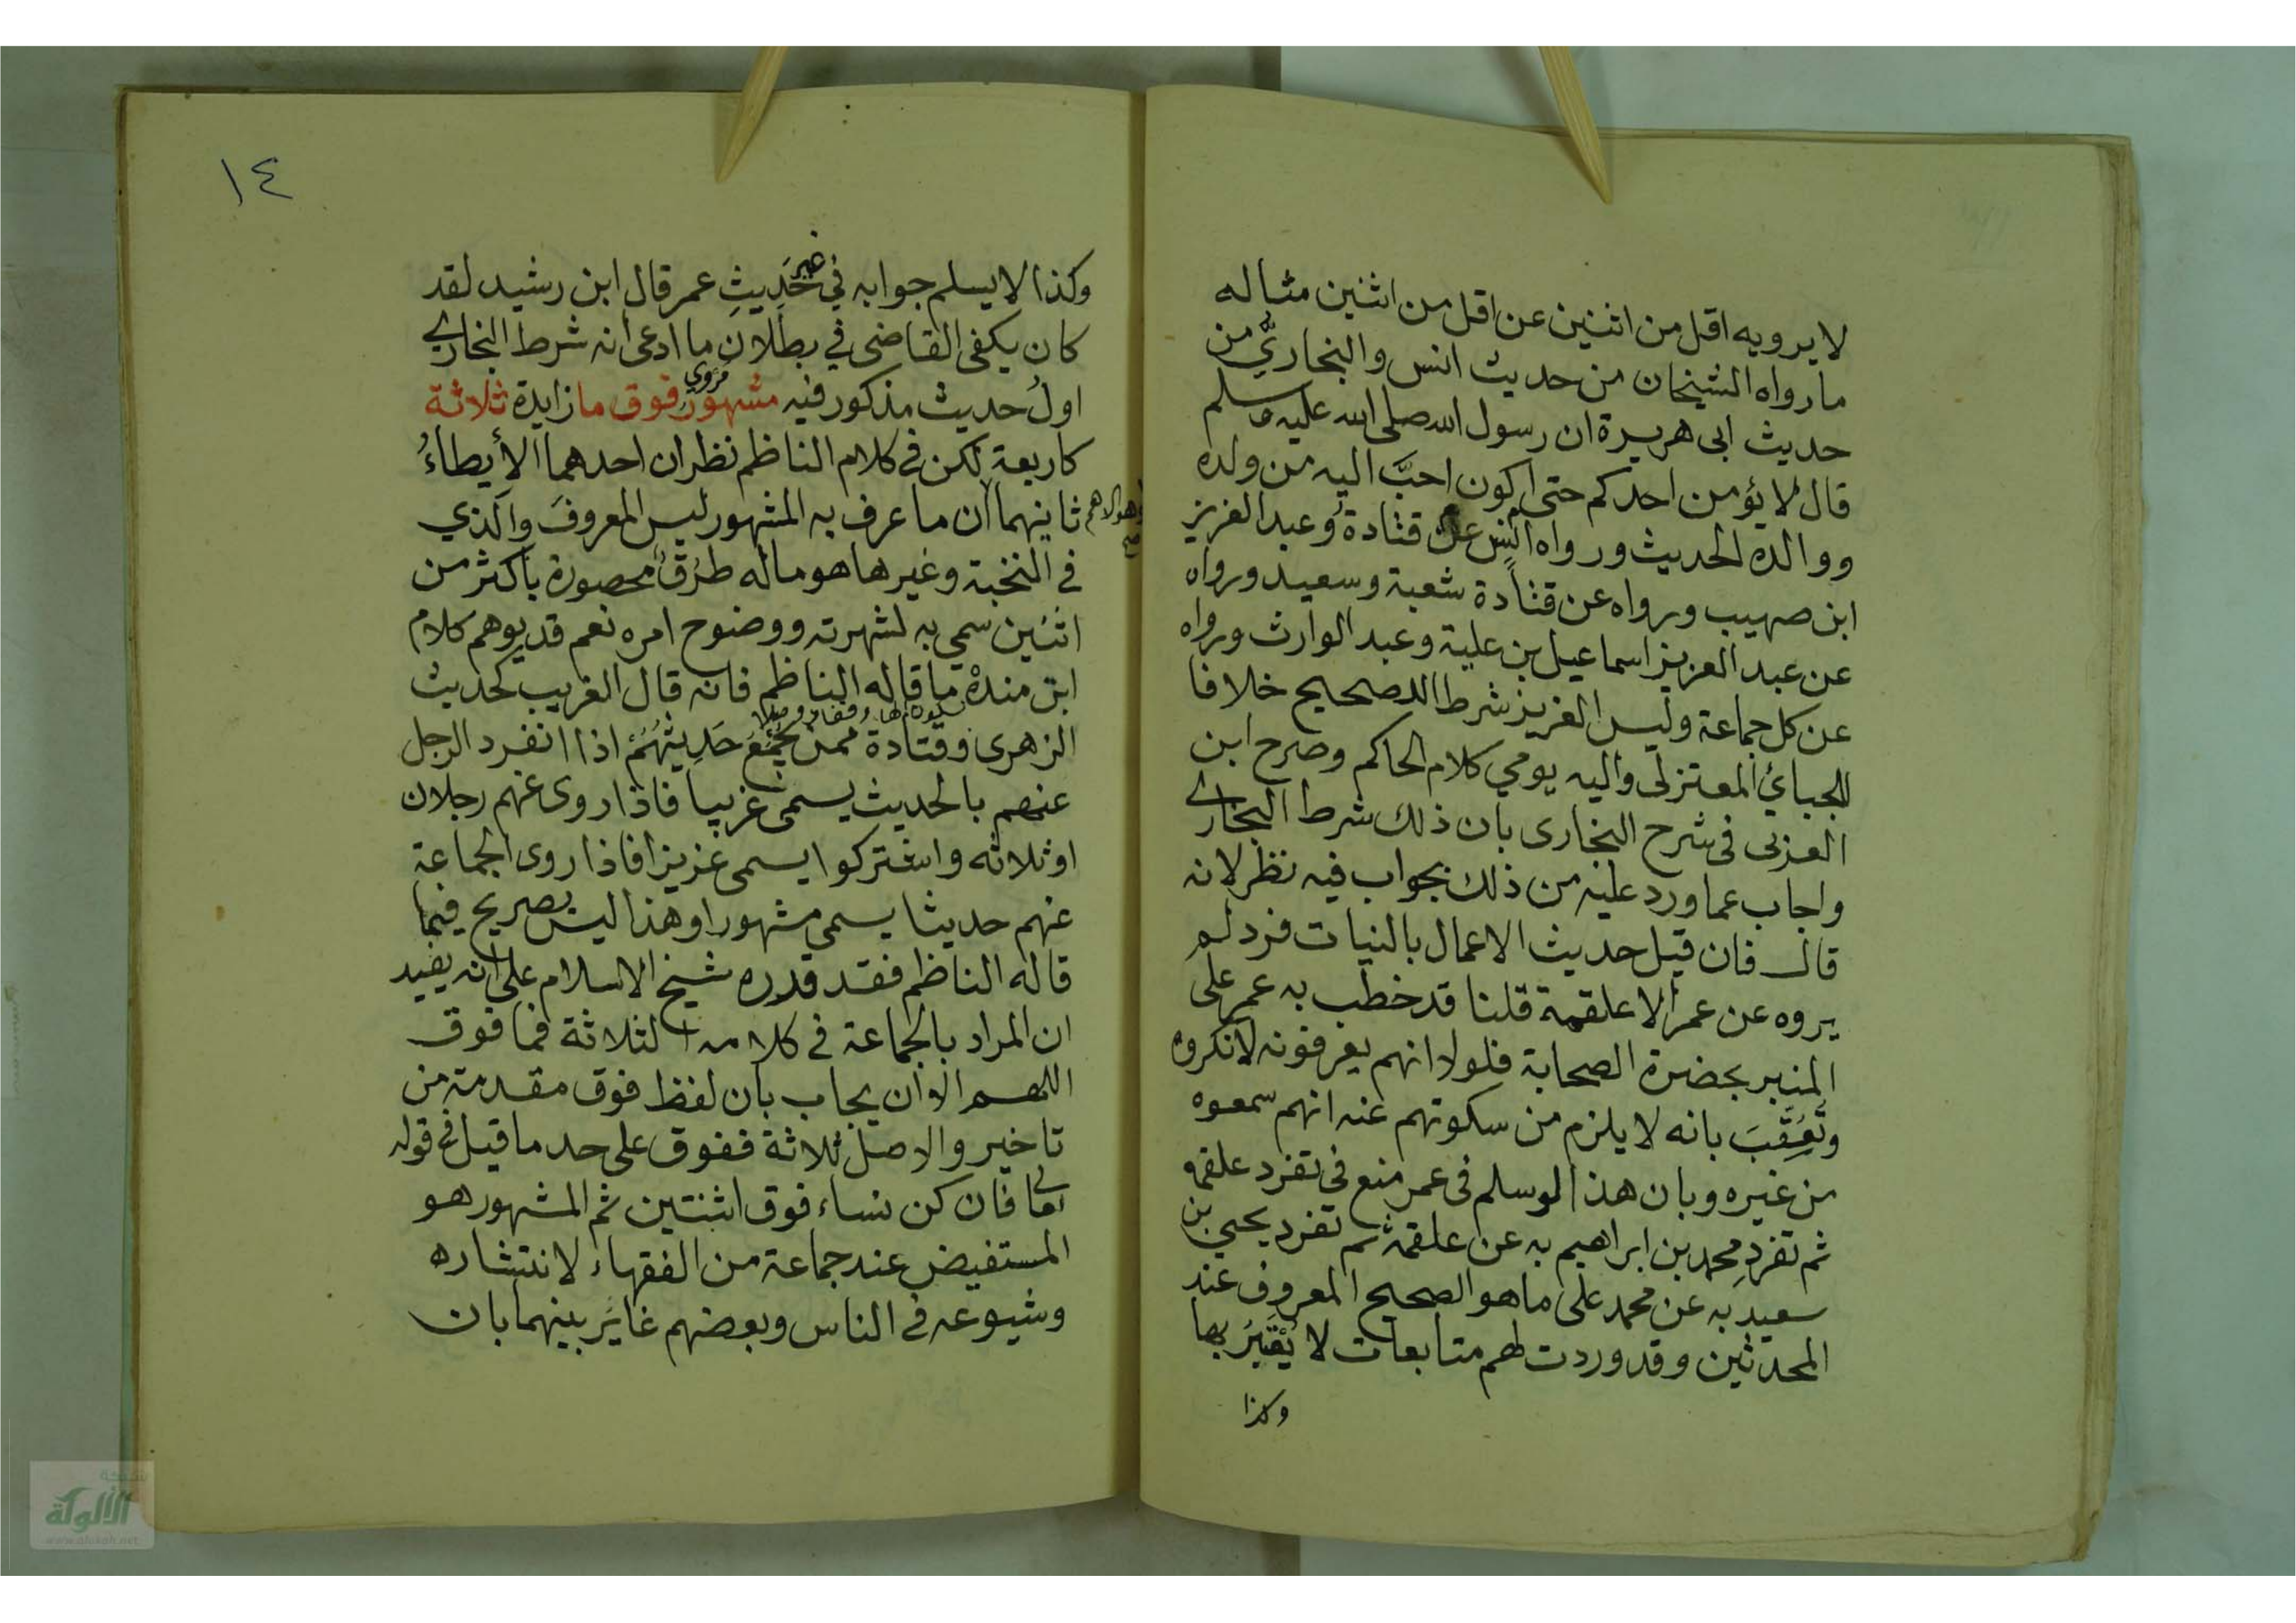 لا يرويه اقل من اثنين عن اقل من اثنين مثاله
ما رواه الشيخان من حديث انس والبخاريُّ من
حديث ابى هريرة ان رسول الله صلى الله عليه وسلم
قال لا يؤمن احدكم حتى اكون احبَّ اليه من ولده
ووالده الحديث ورواه انس عن قتادة وعبد العزيز
ابن صهيب ورواه عن قتادة شعبة وسعيد ورواه
عن عبد العزيز اسماعيل بن علية وعبد الوارث ورواه
عن كل جماعة وليس العزيز شرطا للصحيح خلافا
للجبائي المعتزلى واليه يومي كلام الحاكم وصرح ابن
العربى فى شرح البخارى بان ذلك شرط البخاري
واجاب عما ورد عليه من ذلك بجواب فيه نظر لانه
قال فان قيل حديث الاعمال بالنيات فرد لم
يروه عن عمر الا علقمة قلنا قد خطب به عمر على
المنبر بحضرة الصحابة فلولا انهم يعرفونه لانكروه
وتُعُقِّبَ بانه لا يلزم من سكوتهم عنه انهم سمعوه
من غيره وبان هذا لو سلم فى عمر منع فى تفرد علقمه
ثم تفرد محمد بن ابراهيم به عن علقمة ثم تفرد يحيى بن
سعيد به عن محمد على ما هو الصحيح المعروف عند
المحدثين وقد وردت لهم متابعات لا يُعْتَبَرُ بها
وكذا
١٤
وكذا لا يسلم جوابه في غير حَدِيثِ عمر قال ابن رشيد لقد
كان يكفى القاضى في بطلان ما ادعى انه شرط البخاري
اولُ حديث مذكور فيه مشهور مروي فوق ما زايدة ثلاثة
كاربعة لكن فى كلام الناظم نظران احدهما الأيطاءُ
ثانيهما وهو الاهم صح ان ما عرف به المشهور ليس المعروفَ والذي
فى النخبة وغيرها هو ماله طرُقٌ محصورة باكثر من
اثنين سمي به لشهرته ووضوح امره نعم قد يوهم كلام
ابن مندة ما قاله الناظم فانه قال الغريب كحديث
الزهرى وقتادة ممن يُجْمَعُ حَدِيثُهُمْ اذا انفرد الرجل
عنهم بالحديث يسمى غريبا فاذا روى عنهم رجلان
او ثلاثه واشتركوا يسمى عزيزا فاذا روى الجماعة
عنهم حديثا يسمي مشهورا وهذا ليس بصريح فيما
قاله الناظم فقد قدره شيخ الاسلام على انه يفيد
ان المراد بالجماعة فى كلامه الثلاثة فما فوق
اللهم الا ان يجاب بان لفظ فوق مقدمة من
تاخير والاصل ثلاثة ففوق على حد ما قيل فى قوله
تعالى فان كن نساء فوق اثنتين ثم المشهور هو
المستفيض عند جماعة من الفقهاء لانتشاره
وشيوعه فى الناس وبعضهم غايَر بينهما بان
شبكة
الألوكة
www.alukah.net